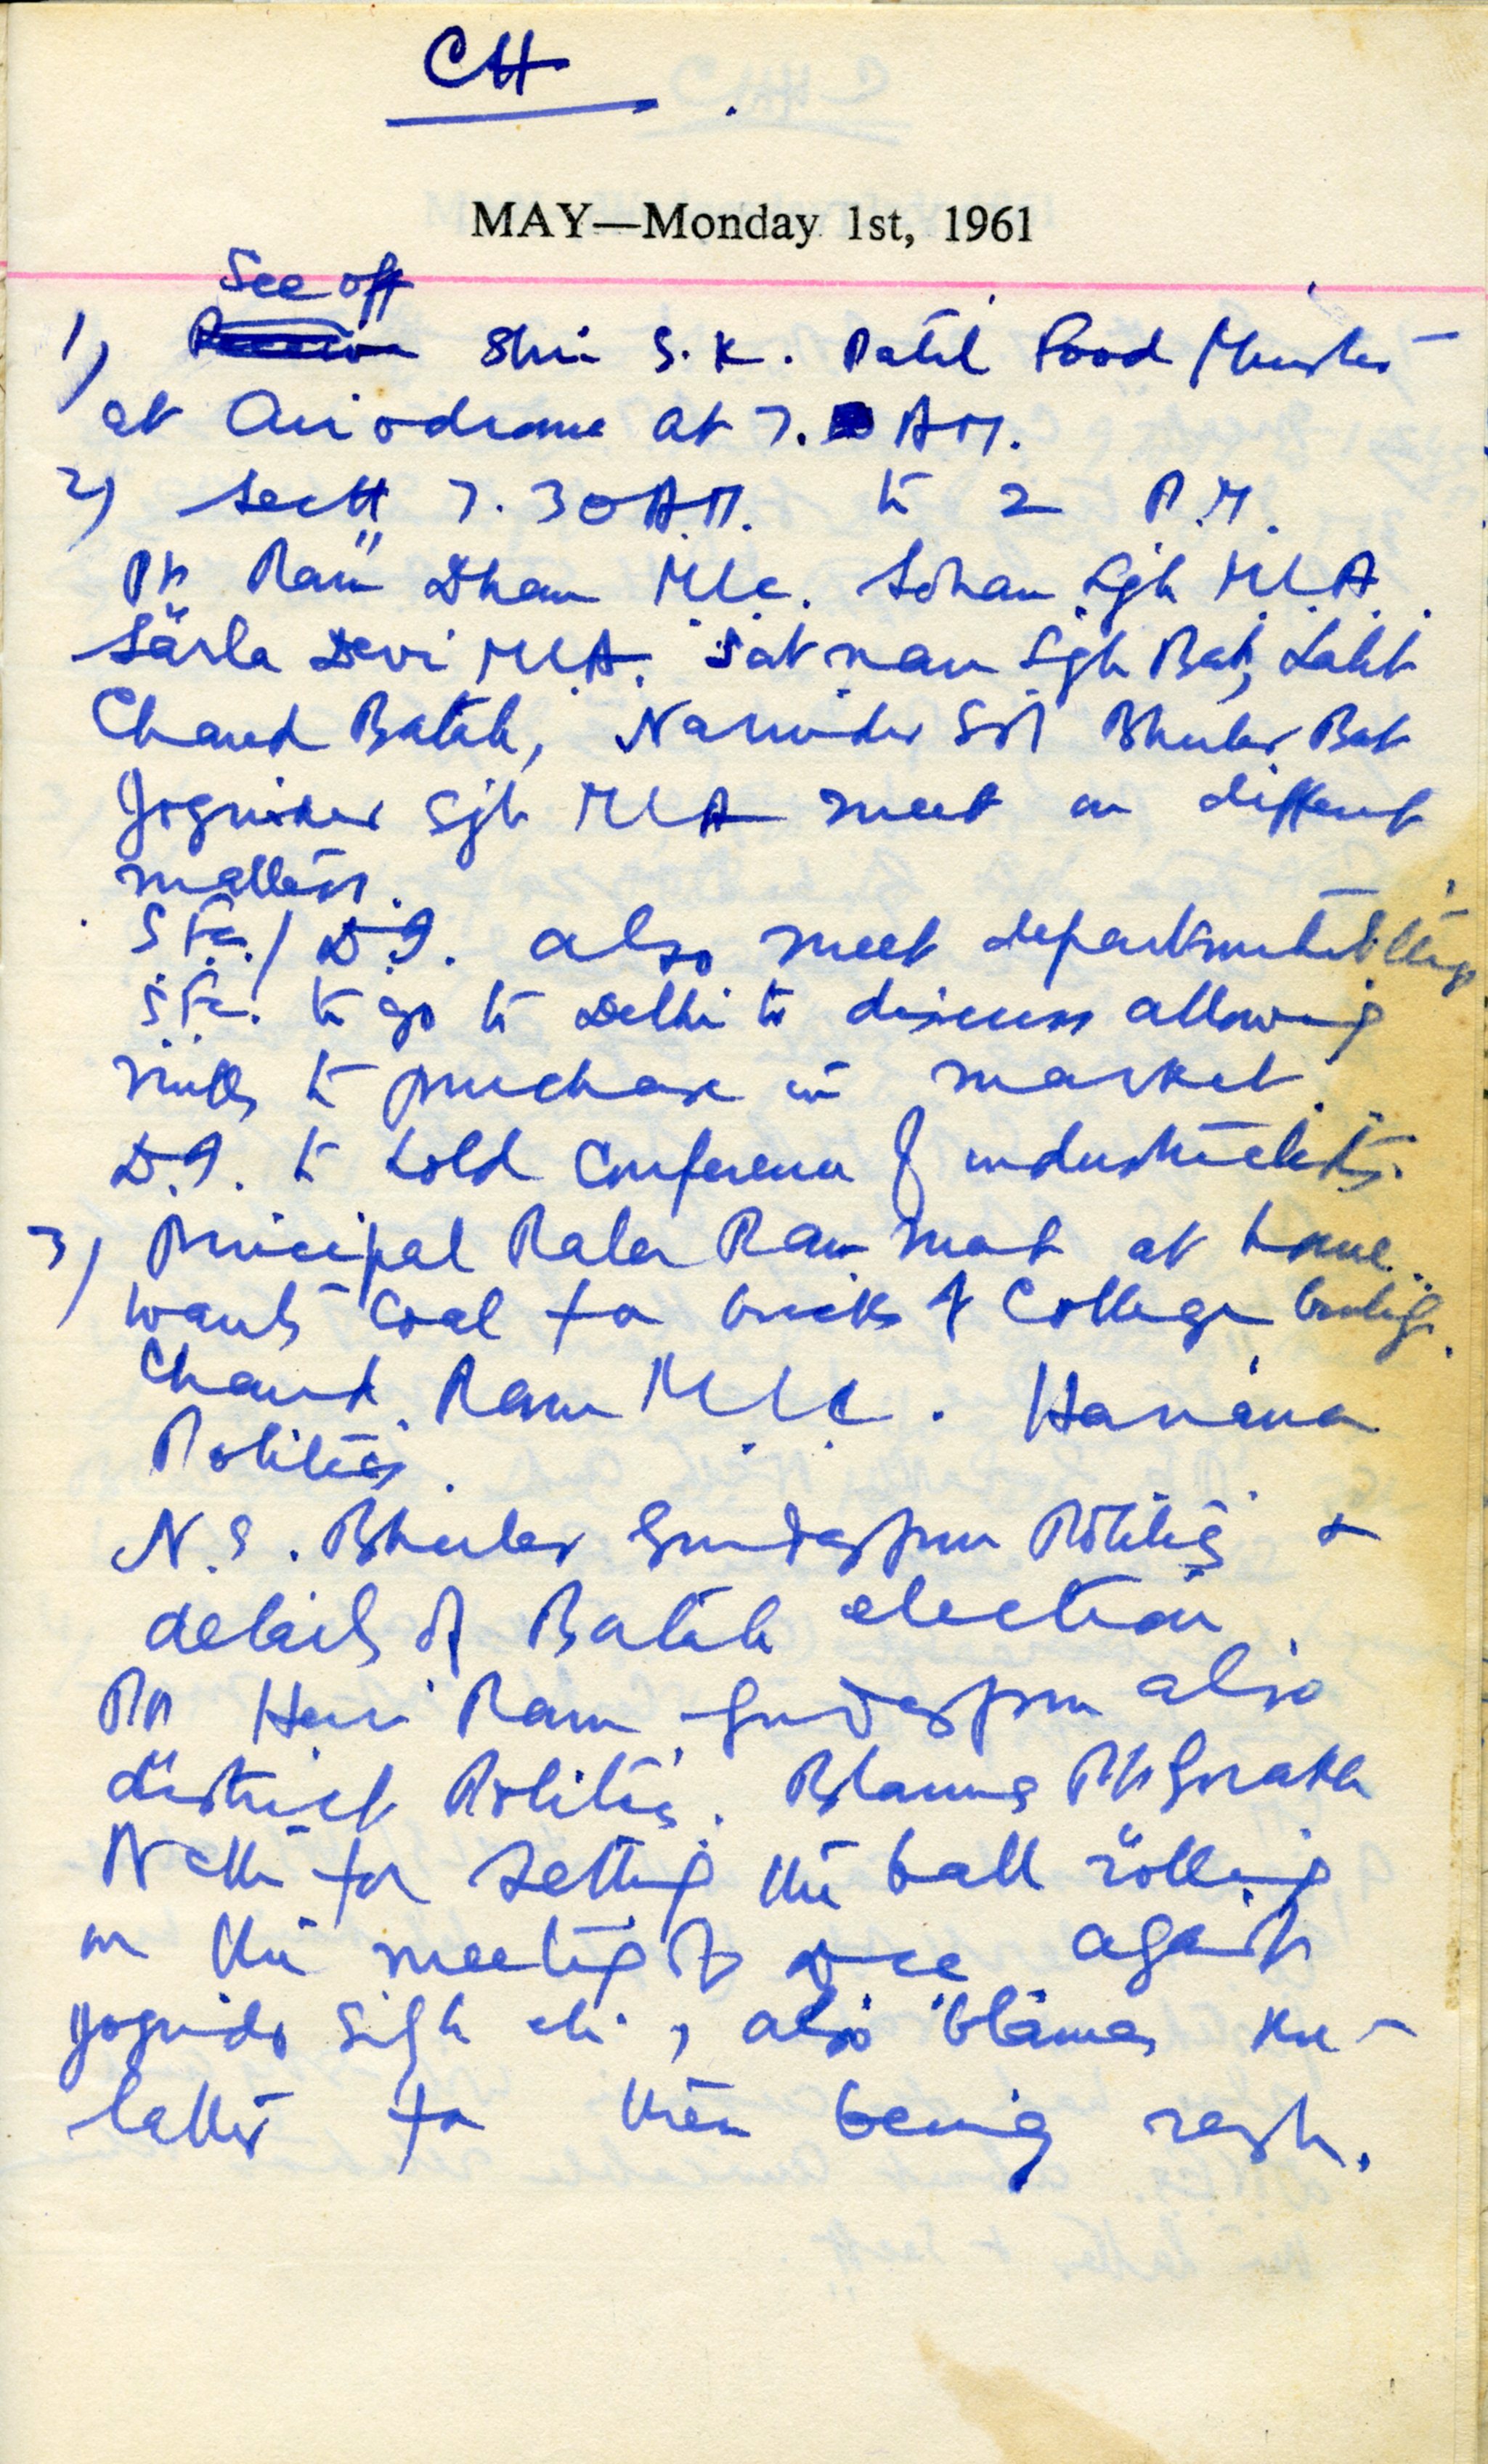 CH
MAY—Monday 1st, 1961
See off
1) Shri S.K. Patil Food Minister
at Airodrome at 7. AM.
2) Sectt 7.30 AM. to 2 P.M.
Pt Ram Dhan MLC. Sohan Sgh M.L.A.
Sarla Devi MLA. Satnam Sgh Bat, Lakht
Chand Batala, Narinder Sgh Bhuler Bat
Joginder Sgh MLA meet on different
matters.
S Fs./ D.I. also meet departmental
S Fs. to go to Delhi to discuss allowing
mills to purchase in market.
D.I. to hold Conference of industrialists.
3) Principal Rala Ram met at home.
wants Coal for bricks of College buildig.
Chand Ram MLC. Hariana
Politics.
N.S. Bhuler Gurdaspur Politics &
details of Batala election.
Pt Hari Ram Gurdaspur also
district Politics. Blames Pt Gorakh
Nath for setting the ball rolling
in the meeting of DCC against
Joginder Sigh etc, also blames the
latter for their being rash.